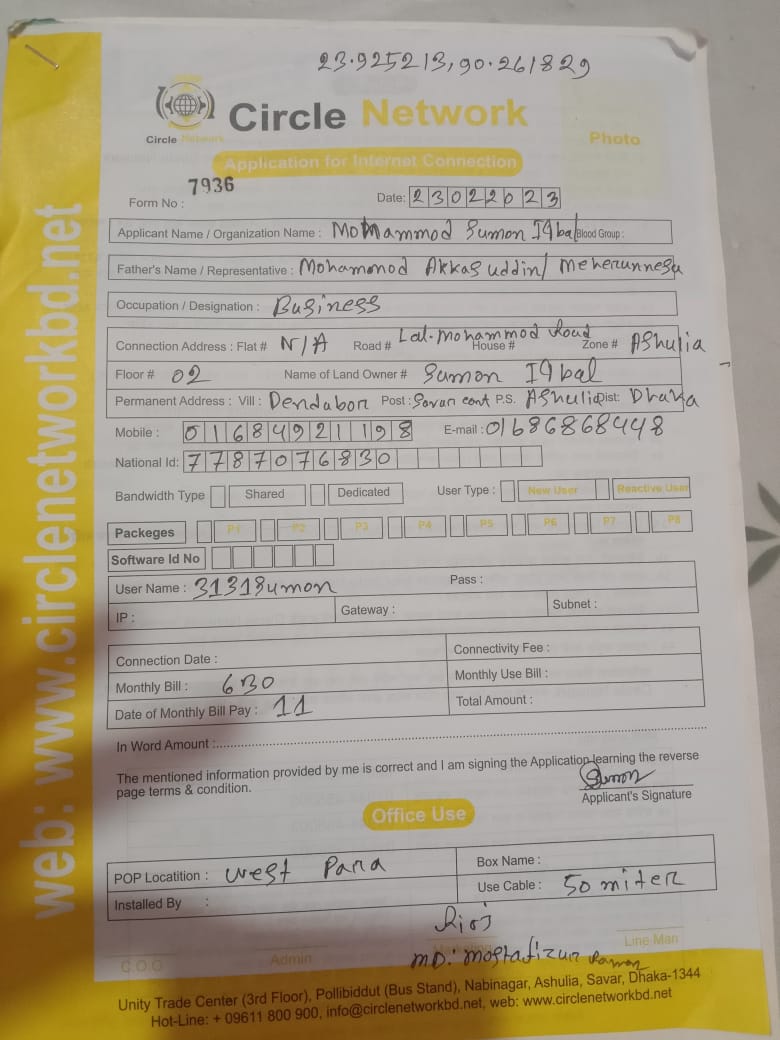 23.925213,90.261829
Circle Network
Circle Network
Photo
Application for Internet Connection
Form No : 7936
Date: 23022023
Applicant Name / Organization Name : Mohammod Sumon Iqbal Blood Group :
Father's Name / Representative : Mohammod Akkas uddin/ Meherunnesa
Occupation / Designation : Business
Connection Address : Flat # N/A Road # Lal-Mohammod Road House # Zone # Ashulia
Floor # 02 Name of Land Owner # Sumon Iqbal
Permanent Address : Vill : Dendabor Post : Savar cant P.S. Ashulia Dist: Dhaka
Mobile : 01684921198 E-mail : 01686868448
National Id: 7787076830
Bandwidth Type Shared Dedicated User Type : New User Reactive User
Packeges P1 P2 P3 P4 P5 P6 P7 P8
Software Id No
User Name : 3131Sumon Pass :
IP : Gateway : Subnet :
Connection Date : Connectivity Fee :
Monthly Bill : 630 Monthly Use Bill :
Date of Monthly Bill Pay : 11 Total Amount :
In Word Amount :
The mentioned information provided by me is correct and I am signing the Application learning the reverse
page terms & condition.
Sumon
Applicant's Signature
Office Use
POP Locatition : West Para Box Name :
Installed By : Use Cable : 50 miter
MD: Mostafizur Raman
C.O.O Admin Line Man
Unity Trade Center (3rd Floor), Pollibiddut (Bus Stand), Nabinagar, Ashulia, Savar, Dhaka-1344
Hot-Line: + 09611 800 900, info@circlenetworkbd.net, web: www.circlenetworkbd.net
web: www.circlenetworkbd.net